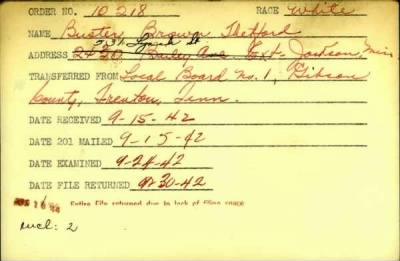 ORDER NO. 10218 RACE White
NAME Buster Brown Thetford
231 Grand St
ADDRESS 2420 Bailey Ave. Ext- Jackson, Miss
TRANSFERRED FROM Local Board No. 1, Gibson
County, Trenton, Tenn.
DATE RECEIVED 9-15-42
DATE 201 MAILED 9-15-42
DATE EXAMINED 9-24-42
DATE FILE RETURNED 9-30-42
Entire File returned due to lack of filing space
incl: 2